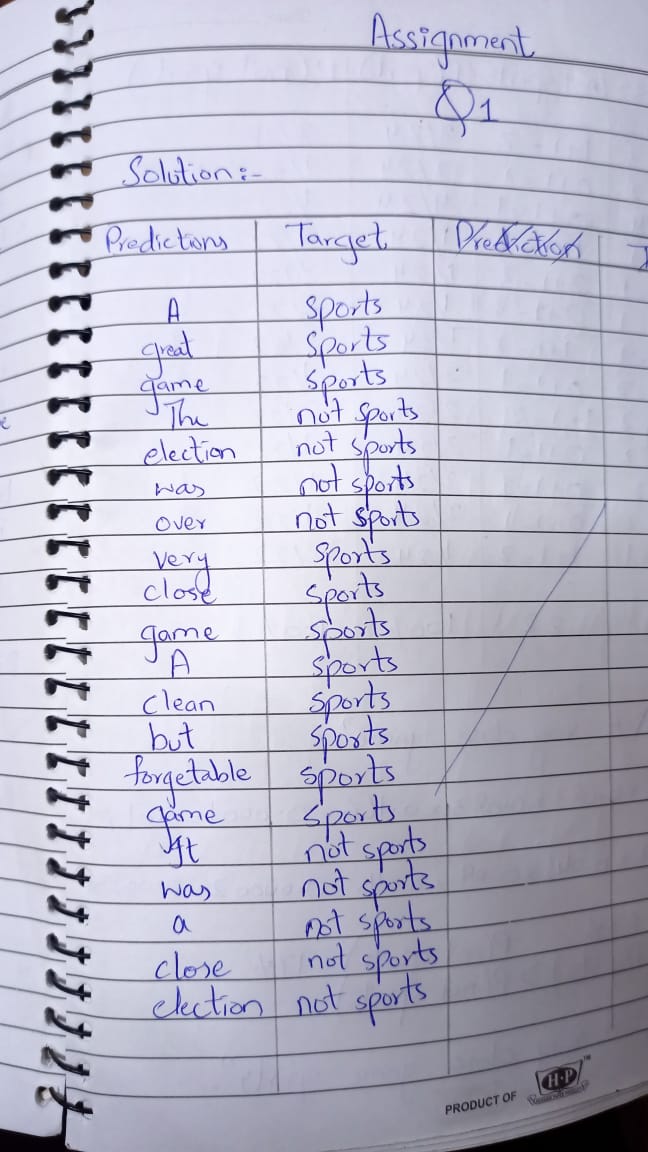 Assignment
Q1
Solution:-
Predictions Target Prediction
A sports
great sports
game sports
The not sports
election not sports
was not sports
over not sports
very sports
close sports
game sports
A sports
clean sports
but sports
forgetable sports
game sports
It not sports
was not sports
a not sports
close not sports
election not sports
PRODUCT OF H·P